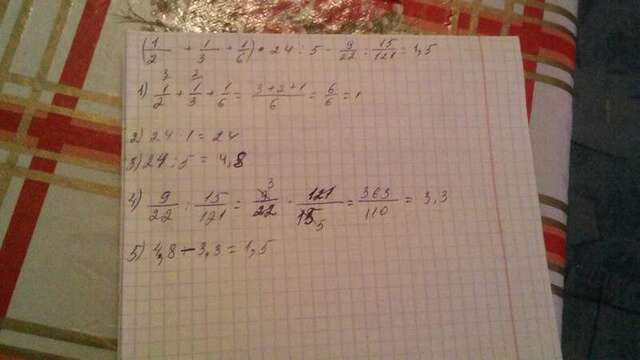 (1/2 + 1/3 + 1/6) • 24 : 5 - 9/22 : 15/121 = 1,5
3 2
1) 1/2 + 1/3 + 1/6 = 3+2+1/6 = 6/6 = 1
2) 24 · 1 = 24
3) 24 : 5 = 4,8
4) 9/22 : 15/121 = 9 3/22 · 121/15 5 = 363/110 = 3,3
5) 4,8 - 3,3 = 1,5